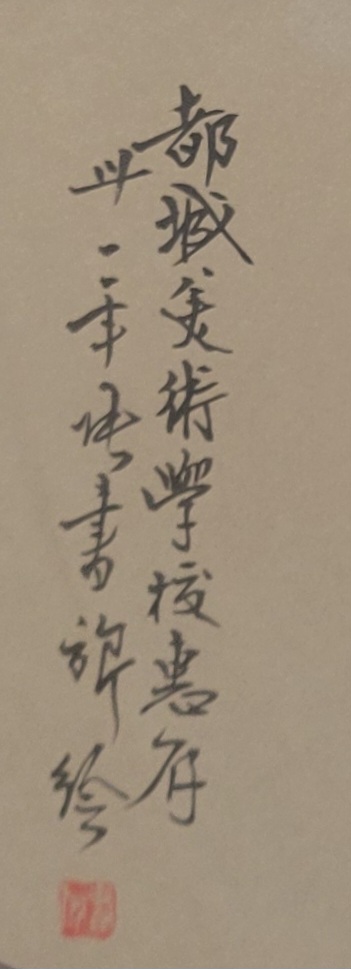 都城美術學校惠存
卅二年張書旂繪